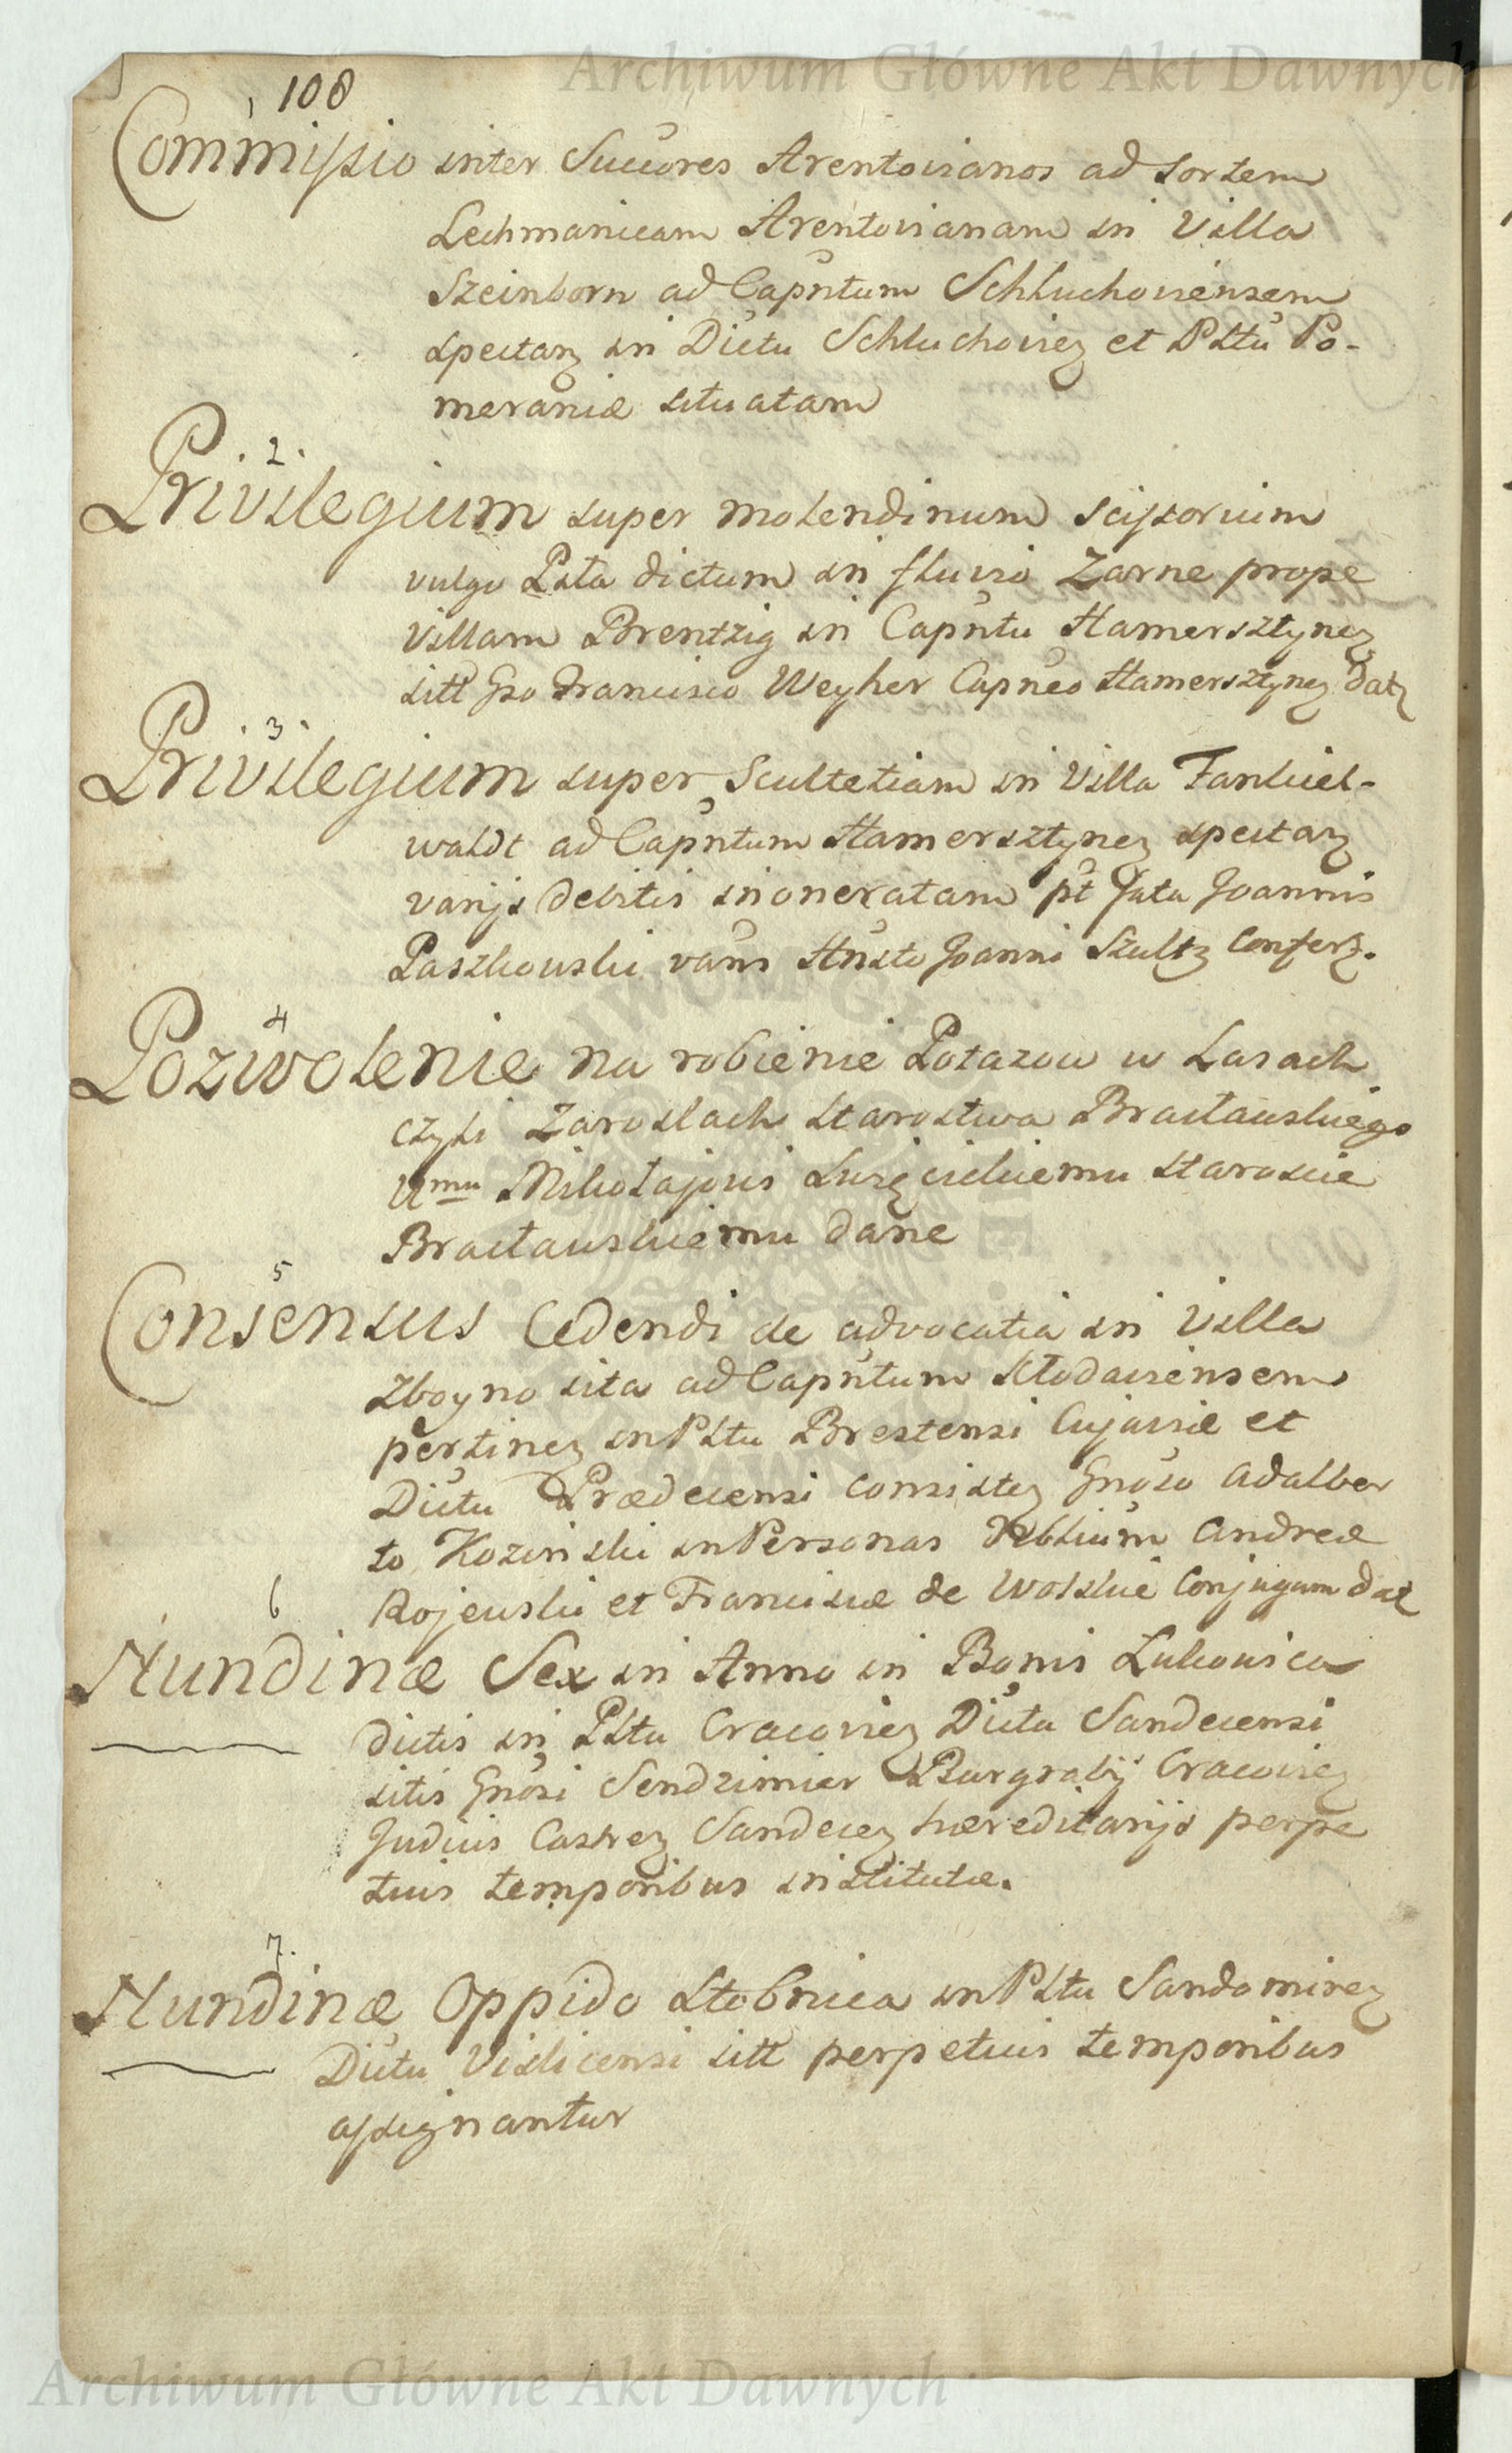 Archiwum Główne Akt Dawnych
108
1
Commissio inter Succores Arentovianos ad sortem
Lechmanicam Arentovianam in Villa
Szeinborn ad Capntum Schluchoviensem
spectanz in Dictu Schluchovienz et Pltu Po-
meraniæ situatam
2.
Privilegium super molendinum scissorium
vulgo Piła dictum in fluvio Zarne prope
Villam Brentzig in Capntu Hamersztynez
sitt Gso Francisco Weyher Capneo Hamersztynez Datz
3.
Privilegium super Scultetiam in Villa Fankiel-
waldt ad Capntum Hamersztynez spectanz
varijs debitis inoneratam pt fata Joannis
Paszkowski vans Hnsto Joanni Szultz Conferz.
4
Pozwolenie na robienie Potazow w Lasach
czyli Zaroslach Starostwa Bracławskiego
Umu Mikołajowi Swięcickiemu Staroscie
Bracławskiemu dane
5
Consensus Cedendi de advocatia in Villa
Zboyno sita ad Capntum Kłodaviensem
pertinez in Pltu Brestensi Cujaviæ et
Dictu Prædecensi consistez Gnoso Adalber
to Kozinski in Personas Nobilium Andreæ
Rojewski et Franciscæ de Wolskie Conjugum dat
6
Nundinæ Sex in Anno in Bonis Lukowica
dictis in Pltu Cracoviez Dictu Sandecensi
sitis Gnosi Sendzimier Burgrabij Cracoviez
Judicis Castrez Sandecez hæreditarijs perpe
tuis temporibus institutæ.
7.
Nundinæ Oppido Stobnica in Pltu Sandomirez
Dictu Vislicensi sitt perpetuis temporibus
assignantur
Archiwum Główne Akt Dawnych